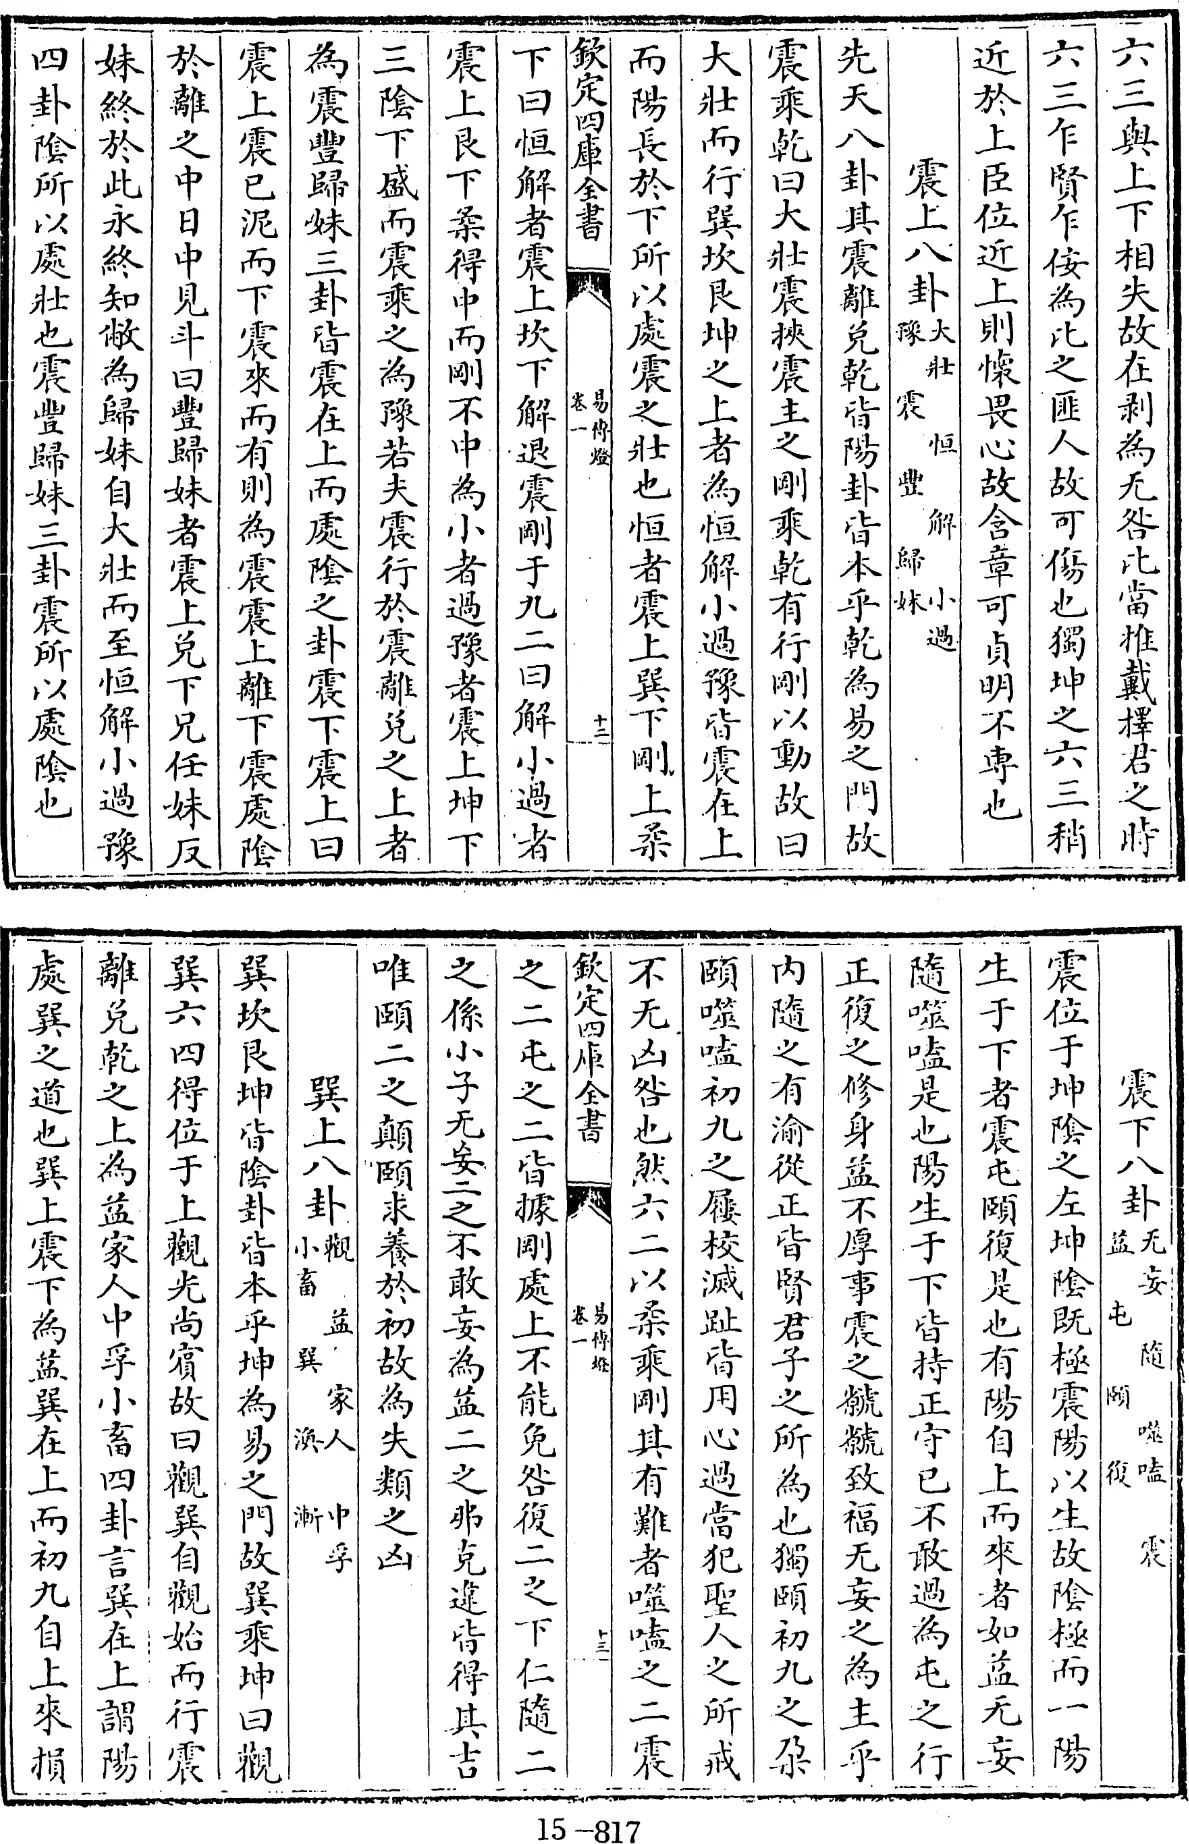 六三與上下相失故在剥為无咎比當推戴擇君之時
六三乍賢乍佞為比之匪人故可傷也獨坤之六三稍
近於上臣位近上則懷畏心故含章可貞明不専也
震上八卦大壯恒解小過豫震豐歸妹
先天八卦其震離兌乾皆陽卦皆本乎乾為易之門故
震乘乾曰大壯震挾震主之剛乘乾有行剛以動故曰
大壯而行巽坎艮坤之上者為恒解小過豫皆震在上
而陽長於下所以處震之壯也恒者震上巽下剛上柔
欽定四庫全書
易傳燈
卷一
十二
下曰恒解者震上坎下解退震剛于九二曰解小過者
震上艮下柔得中而剛不中為小者過豫者震上坤下
三陰下盛而震乘之為豫若夫震行於震離兌之上者
為震豐歸妹三卦皆震在上而處陰之卦震下震上曰
震上震已泥而下震來而有則為震震上離下震處陰
於離之中日中見斗曰豐歸妹者震上兌下兄任妹反
妹終於此永終知敝為歸妹自大壯而至恒解小過豫
四卦陰所以處壯也震豐歸妹三卦震所以處陰也
震下八卦无妄隨噬嗑震益屯頤復
震位于坤陰之左坤陰既極震陽以生故陰極而一陽
生于下者震屯頤復是也有陽自上而來者如益无妄
隨噬嗑是也陽生于下皆持正守已不敢過為屯之行
正復之修身益不厚事震之虩虩致福无妄之為主乎
内隨之有渝從正皆賢君子之所為也獨頤初九之朶
頤噬嗑初九之屨校滅趾皆用心過當犯聖人之所戒
不无凶咎也然六二以柔乘剛其有難者噬嗑之二震
欽定四庫全書
易傳燈
卷一
十三
之二屯之二皆據剛處上不能免咎復二之下仁隨二
之係小子无妄二之不敢妄為益二之弗克違皆得其吉
唯頤二之顛頤求養於初故為失類之凶
巽上八卦觀益家人中孚小畜巽渙漸
巽坎艮坤皆陰卦皆本乎坤為易之門故巽乘坤曰觀
巽六四得位于上觀光尚賓故曰觀巽自觀始而行震
離兌乾之上為益家人中孚小畜四卦言巽在上謂陽
處巽之道也巽上震下為益巽在上而初九自上來損
15-817